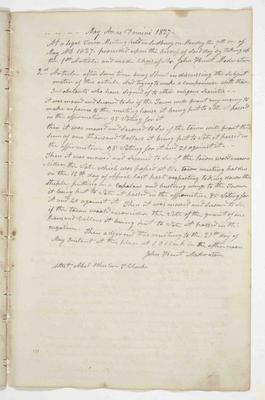 May Anno Domini 1827
At a legal Town Meeting held in Sudbury on Monday the 7th on of
May AD 1827. proceeded upon the business of said day by taking up
the 1st Article and made choice of Mr John Hunt Moderator
2nd Article after some time being spent in discussing the subject
matter of this article and trying to make a compromise with those
Inhabitants who have signed of to other religious societies
it was moved and seconded to see if the Town will grant any money to
make repairs on the meeting house it being put to vote it passed
in the affirmative 95 Voting for it
then it was moved and seconded to see if the town will grant the
sum of one thousand dollars it being put to vote it passed in
the affirmative 95 Voting for it and 21 against it
Then it was moved and seconded to see if the town would recon
sider the Vote which was passed at the town meeting holden
on the 12th day of April last past respecting taking down the
steeple putting on a Copalow and building wings to the Tower
it being put to vote it passed in the affirmative 85 voting for
it and 21 against it. Then it was moved and seconded to see
if the town would reconsider the vote of the grant of one
thousand dollars it being put to vote it passed in the
negative. Then adjourned this meeting to the 21st day of
May Instant at this place at 1 O Clock in the afternoon
John Hunt Moderator
Attest Abel Wheeler T. Clerk